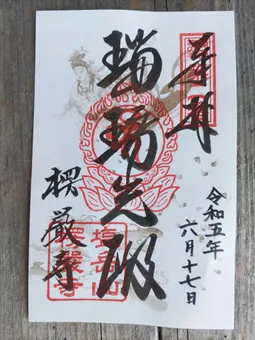 奉拝
令和五年
六月十七日
瑠璃光殿
楞厳寺
塩岳山
楞厳寺